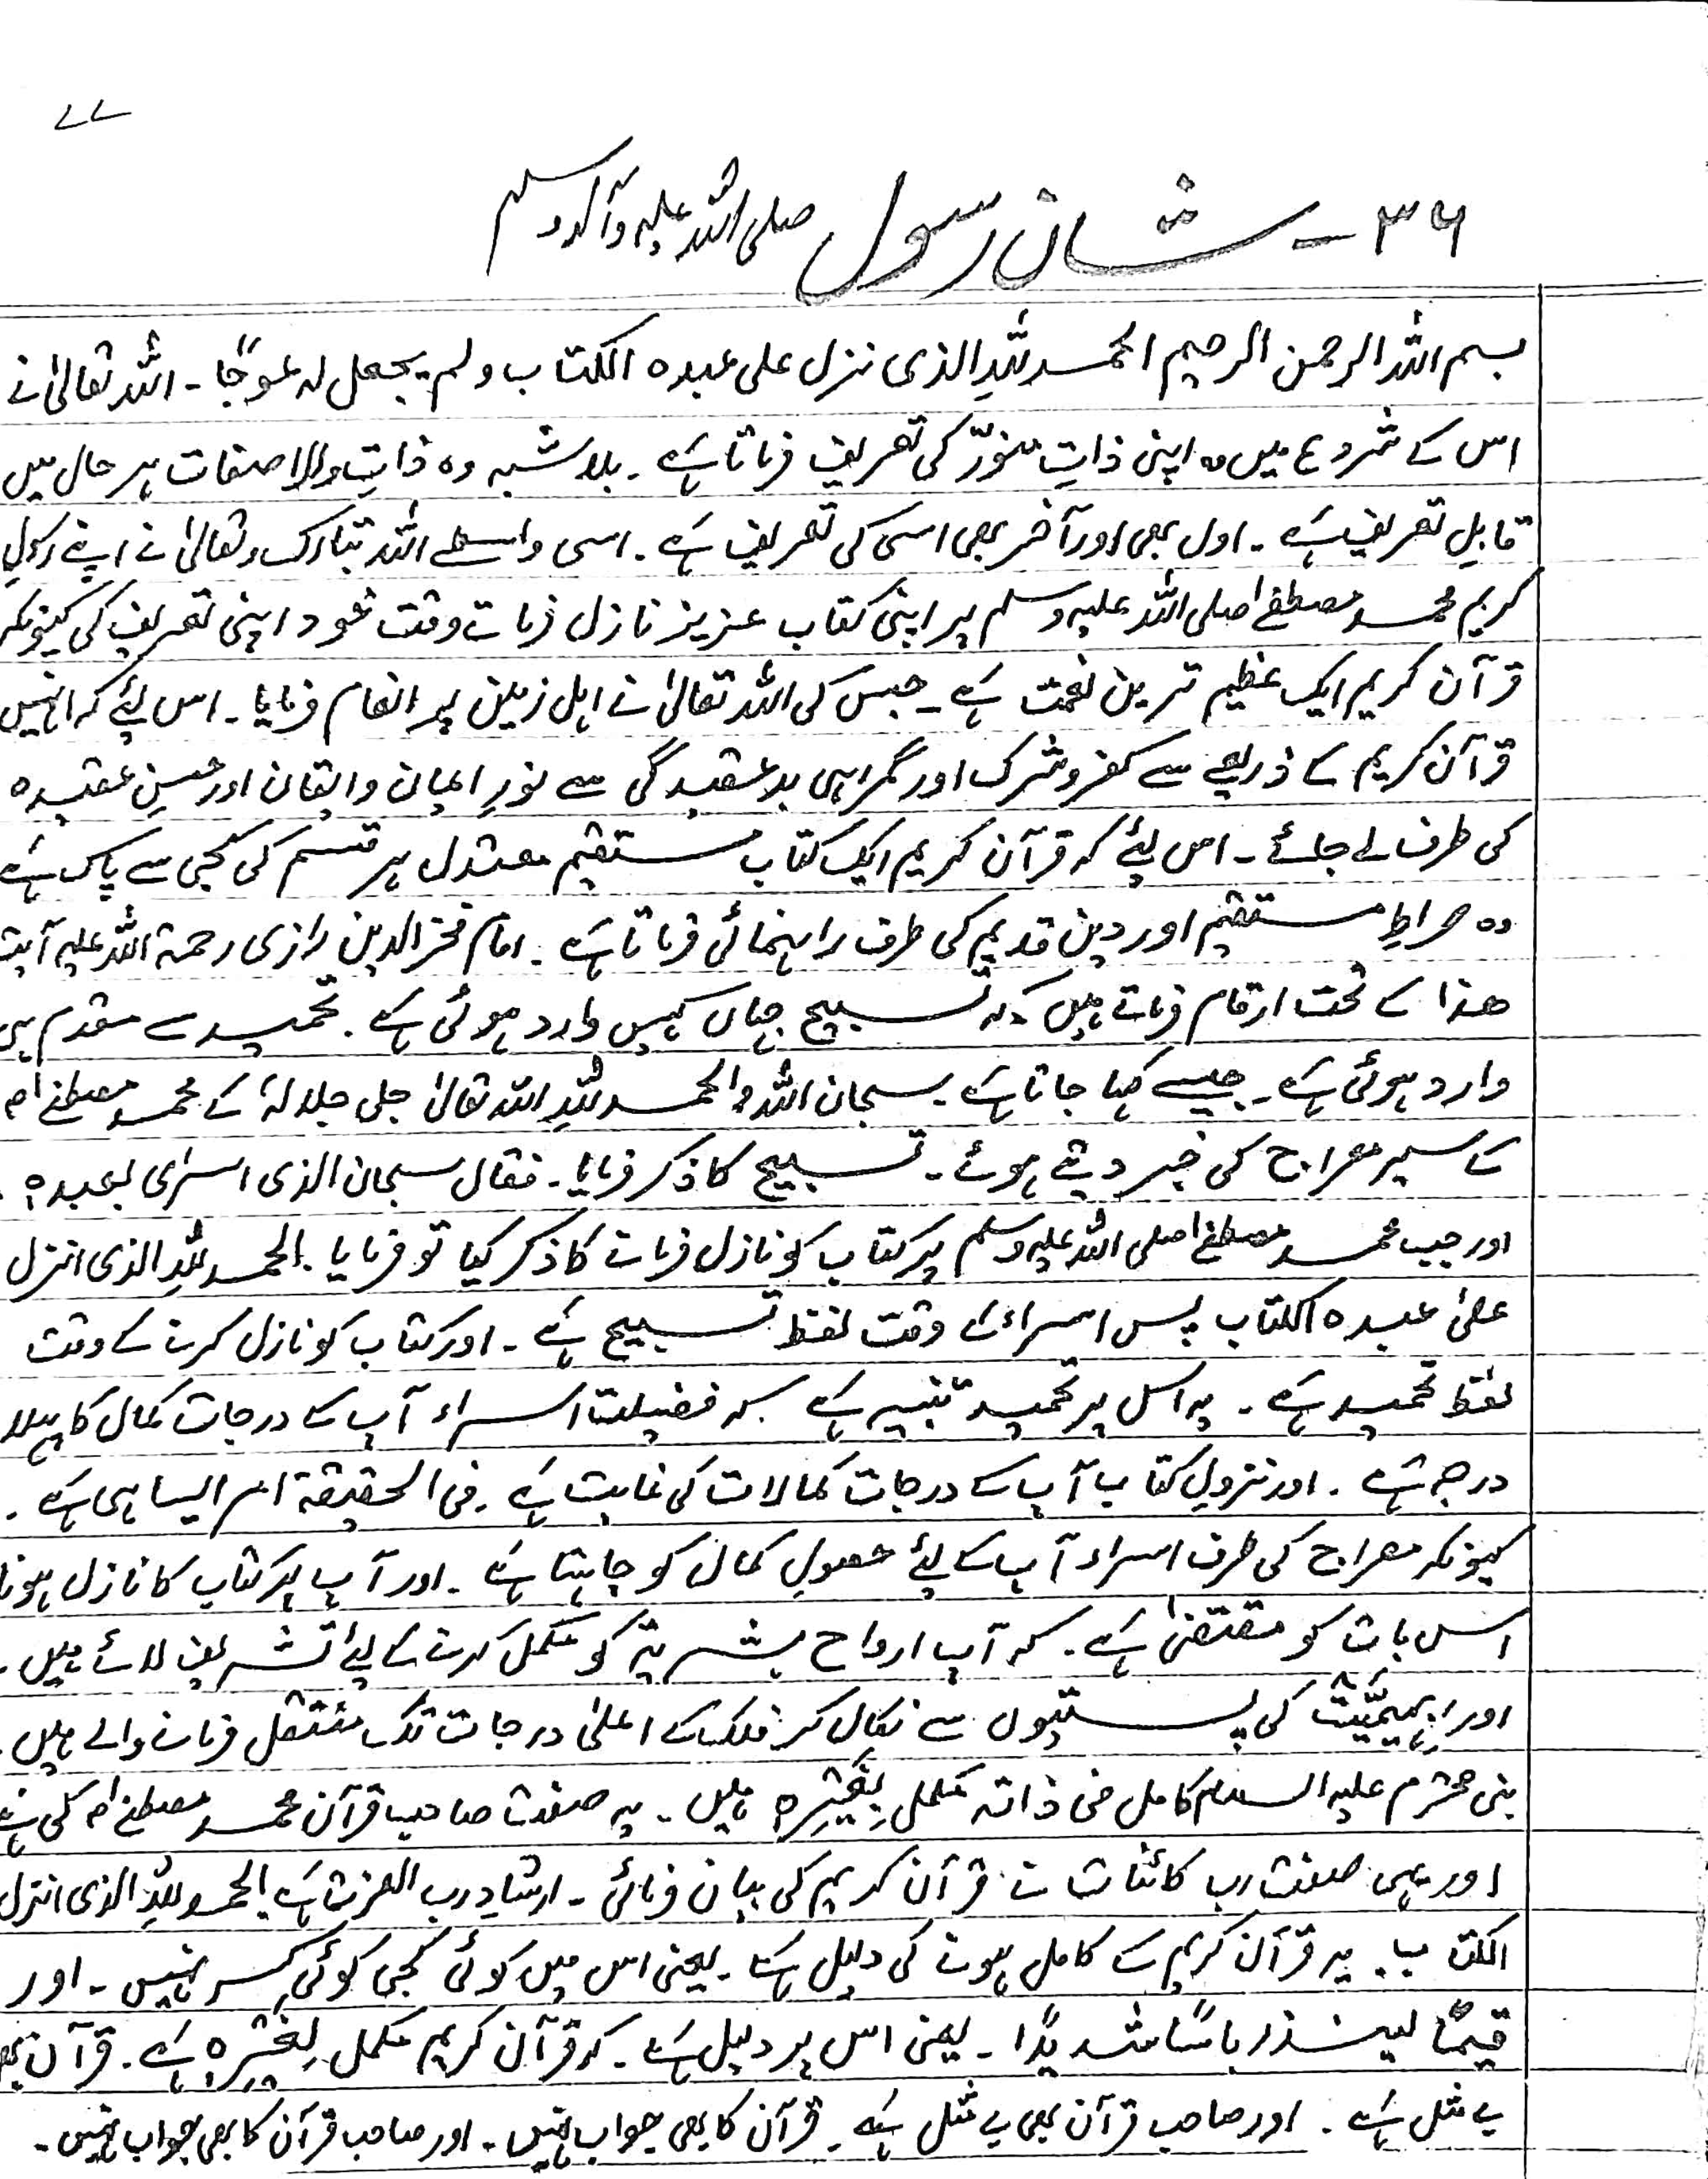 ۷۷
۳۶ - شانِ رسول صلی اللہ علیہ وآلہ وسلم
بسم اللہ الرحمن الرحیم الحمد للہِ الذی نزل علی عبدہ الکتاب ولم یجعل لہ عوجًا ۔ اللہ تعالیٰ نے
اس کے شروع میں اپنی ذاتِ منوّر کی تعریف فرماتا ہے ۔ بلا شبہ وہ ذاتِ والا صفات ہر حال میں
قابلِ تعریف ہے ۔ اول بھی اور آخر بھی اسی کی تعریف ہے ۔ اسی واسطے اللہ تبارک وتعالیٰ نے اپنے رسولِ
کریم محمد مصطفےٰ صلی اللہ علیہ وسلم پر اپنی کتاب عزیز نازل فرماتے وقت خود اپنی تعریف کی کیونکہ
قرآن کریم ایک عظیم ترین نعمت ہے ۔ جس کی اللہ تعالیٰ نے اہل زمین پر انعام فرمایا ۔ اس لئے کہ انہیں
قرآن کریم کے ذریعے سے کفر و شرک اور گمراہی بد عقیدگی سے نورِ ایمان وایقان اور حسنِ عقیدہ
کی طرف لے جائے ۔ اس لئے کہ قرآن کریم ایک کتاب مستقیم معتدل ہر قسم کی کجی سے پاک ہے
وہ صراطِ مستقیم اور دین قدیم کی طرف راہنمائی فرماتا ہے ۔ امام فخر الدین رازی رحمۃ اللہ علیہ آیت
ھذا کے تحت ارقام فرماتے ہیں کہ تسبیح جہاں کہیں وارد ہوئی ہے ۔ تحمید سے مقدم ہی
وارد ہوئی ہے ۔ جیسے کہا جاتا ہے ۔ سبحان اللہ والحمد للہِ اللہ تعالیٰ جل جلالہٗ نے محمد مصطفےٰ ؐ
کے سیر معراج کی خبر دیتے ہوئے ۔ تسبیح کا ذکر فرمایا ۔ فقال سبحان الذی اسریٰ بعبدہ ۔
اور جب محمد مصطفےٰ صلی اللہ علیہ وسلم پر کتاب کو نازل فرمانے کا ذکر کیا تو فرمایا ۔ الحمد للہِ الذی انزل
علیٰ عبدہ الکتاب پس اسراء کے وقت لفظ تسبیح ہے ۔ اور کتاب کو نازل کرنے کے وقت
لفظ تحمید ہے ۔ یہ اس پر تحمید تنبیہ ہے کہ فضیلت اسراء آپ کے درجات کمال کا پہلا
درجہ ہے ۔ اور نزولِ کتاب آپ کے درجات کمالات کی غایت ہے ۔ فی الحقیقۃ امر ایسا ہی ہے ۔
کیونکہ معراج کی طرف اسراء آپ کے لئے حصولِ کمال کو چاہتا ہے ۔ اور آپ پر کتاب کا نازل ہونا
اس بات کو مقتضیٰ ہے ۔ کہ آپ ارواح بشریۃ کو مکمل کرنے کے لئے تشریف لائے ہیں ۔
اور بہیمیّت کی پستیوں سے نکال کر فلک کے اعلیٰ درجات تک منتقل فرمانے والے ہیں ۔
نبی محترم علیہ السلام کامل فی ذاتہ مکمل لِغَیْرِہ ہیں ۔ یہ صفت صاحب قرآن محمد مصطفےٰ ؐ کی ہے
اور یہی صفت رب کائنات نے قرآن کریم کی بیان فرمائی ۔ ارشادِ رب العزت ہے الحمد للہِ الذی انزل
الکتاب ۔ یہ قرآن کریم کے کامل ہونے کی دلیل ہے ۔ یعنی اس میں کوئی کجی کوئی کسر نہیں ۔ اور
قیمًا لینذر باسًا شدیدًا ۔ یعنی اس پر دلیل ہے ۔ کہ قرآن کریم مکمل لِغَیْرِہ ہے ۔ قرآن بھی
بے مثل ہے ۔ اور صاحب قرآن بھی بے مثل ہے ۔ قرآن کا بھی جواب نہیں ۔ اور صاحب قرآن کا بھی جواب نہیں ۔